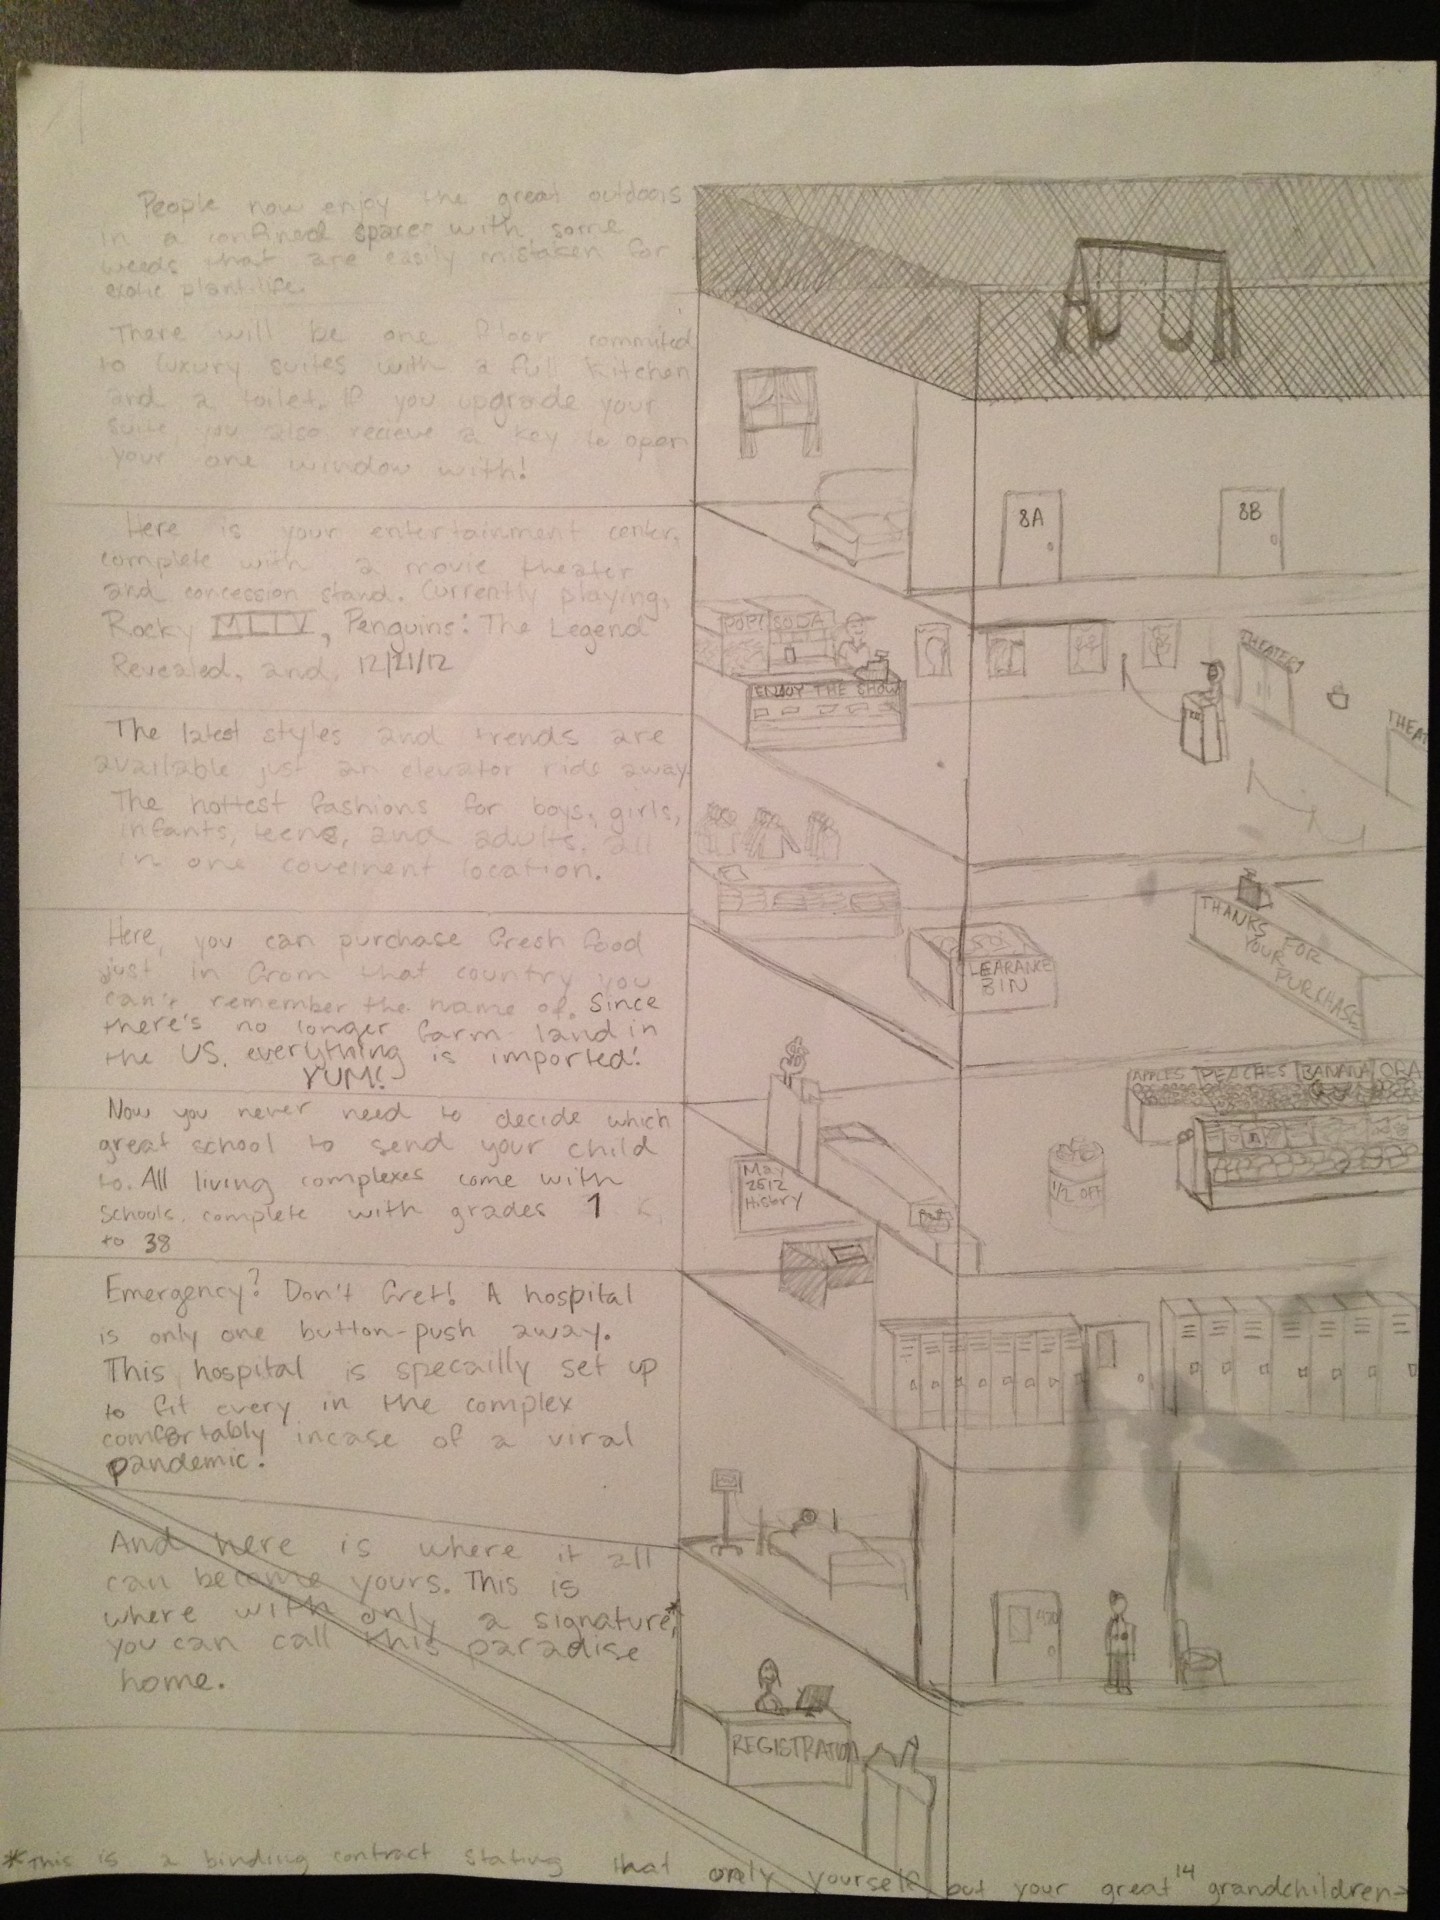 People now enjoy the great outdoors
in a confined spaces with some
weeds that are easily mistaken for
exotic plant life.
There will be one floor commited
to luxury suites with a full kitchen
and a toilet. If you upgrade your
suite, you also recieve a key to open
your one window with!
8A
8B
Here is your entertainment center,
complete with a movie theater
and concession stand. Currently playing,
Rocky MLIV, Penguins: The Legend
Revealed, and 12/21/12
POP!
SODA
ENJOY THE SHOW
THEATER 1
THEAT
The latest styles and trends are
available just an elevator ride away.
The hottest fashions for boys, girls,
infants, teens, and adults, all
in one coveinent location.
CLEARANCE
BIN
THANKS FOR
YOUR
PURCHASE
Here, you can purchase fresh food
just in from that country you
can't remember the name of. Since
there's no longer farm land in
the US, everything is imported!
YUM!
APPLES PEACHES BANANA ORA
1/2 OFF
Now you never need to decide which
great school to send your child
to. All living complexes come with
schools, complete with grades 1
to 38
May
2612
History
Emergency? Don't fret! A hospital
is only one button-push away.
This hospital is specailly set up
to fit every in the complex
comfortably incase of a viral
pandemic!
And here is where it all
can become yours. This is
where with only a signature,*
you can call this paradise
home.
REGISTRATION
*This is a binding contract stating that only yourself but your great 14 grandchildren→